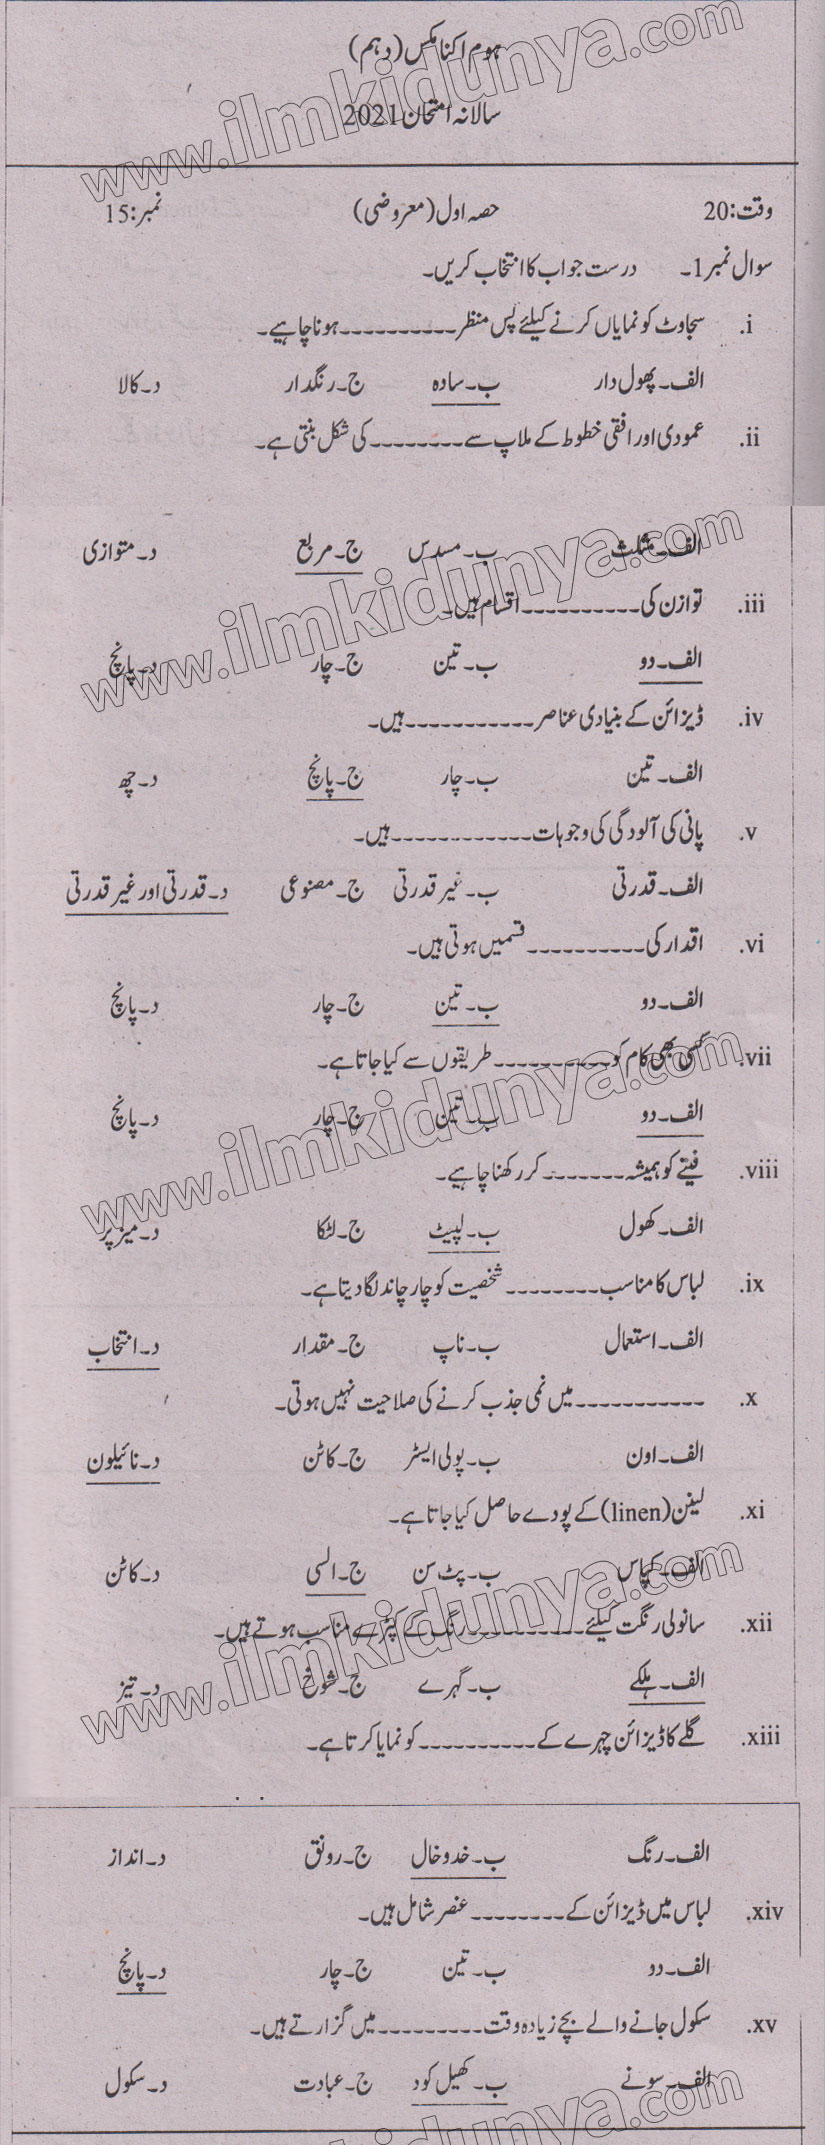 ہوم اکنامکس (دہم)
سالانہ امتحان 2021
وقت: 20 حصہ اول (معروضی) نمبر: 15
سوال نمبر 1۔ درست جواب کا انتخاب کریں۔
i. سجاوٹ کو نمایاں کرنے کیلئے پس منظر ---------- ہونا چاہیے۔
الف۔ پھول دار ب۔ سادہ ج۔ رنگدار د۔ کالا
ii. عمودی اور افقی خطوط کے ملاپ سے -------- کی شکل بنتی ہے۔
الف۔ مثلث ب۔ مسدس ج۔ مربع د۔ متوازی
iii. توازن کی ---------- اقسام ہیں۔
الف۔ دو ب۔ تین ج۔ چار د۔ پانچ
iv. ڈیزائن کے بنیادی عناصر ----------- ہیں۔
الف۔ تین ب۔ چار ج۔ پانچ د۔ چھ
v. پانی کی آلودگی کی وجوہات ------------ ہیں۔
الف۔ قدرتی ب۔ غیر قدرتی ج۔ مصنوعی د۔ قدرتی اور غیر قدرتی
vi. اقدار کی ---------- قسمیں ہوتی ہیں۔
الف۔ دو ب۔ تین ج۔ چار د۔ پانچ
vii. کسی بھی کام کو ---------- طریقوں سے کیا جاتا ہے۔
الف۔ دو ب۔ تین ج۔ چار د۔ پانچ
viii. فیتے کو ہمیشہ ------- کر رکھنا چاہیے۔
الف۔ کھول ب۔ لپیٹ ج۔ لٹکا د۔ میز پر
ix. لباس کا مناسب -------- شخصیت کو چار چاند لگا دیتا ہے۔
الف۔ استعمال ب۔ ناپ ج۔ مقدار د۔ انتخاب
x. ----------- میں نمی جذب کرنے کی صلاحیت نہیں ہوتی۔
الف۔ اون ب۔ پولی ایسٹر ج۔ کاٹن د۔ نائیلون
xi. لینن (linen) کے پودے حاصل کیا جاتا ہے۔
الف۔ کپاس ب۔ پٹ سن ج۔ السی د۔ کاٹن
xii. سانولی رنگت کیلئے ---------- رنگ کے کپڑے مناسب ہوتے ہیں۔
الف۔ ہلکے ب۔ گہرے ج۔ شوخ د۔ تیز
xiii. گلے کا ڈیزائن چہرے کے ---------- کو نمایا کرتا ہے۔
الف۔ رنگ ب۔ خدوخال ج۔ رونق د۔ انداز
xiv. لباس میں ڈیزائن کے -------- عنصر شامل ہیں۔
الف۔ دو ب۔ تین ج۔ چار د۔ پانچ
xv. سکول جانے والے بچے زیادہ وقت --------- میں گزارتے ہیں۔
الف۔ سونے ب۔ کھیل کود ج۔ عبادت د۔ سکول
www.ilmkidunya.com
www.ilmkidunya.com
www.ilmkidunya.com
www.ilmkidunya.com